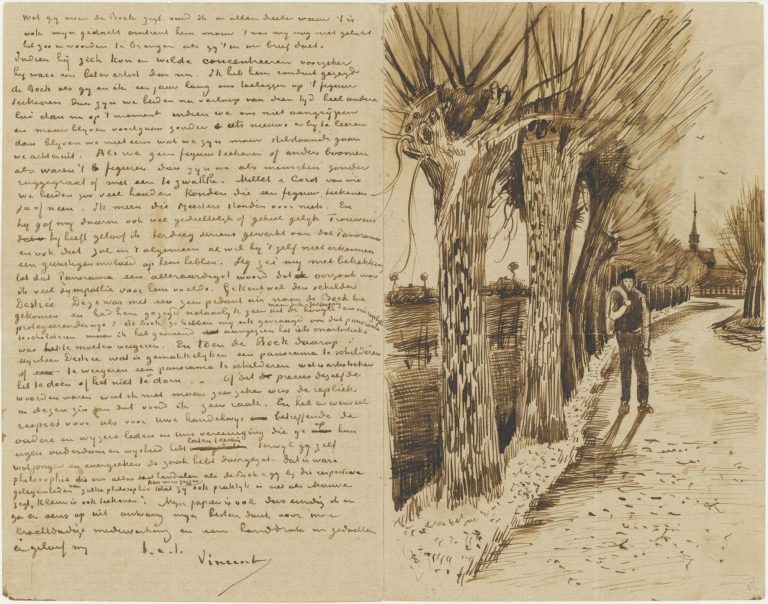 Wat gij over de Bock zegt vind ik in allen deele waar 't is
ook mijn gedacht omtrent hem maar 't was mij nog niet gelukt
het zoo in woorden te brengen als gij 't in uw brief doet.
Indien hij zich kon en wilde concentreeren voorzeker
hij ware een beter artist dan nu. Ik heb hem ronduit gezegd
de Bock als gij en ik een jaar lang ons toeleggen op 't figuur
teekenen dan zijn we beiden na verloop van dien tijd heel andere
lui dan nu op 't moment indien we ons niet aangrijpen
en maar blijven voortgaan zonder iets nieuws er bij te leeren
dan blijven we niet eens wat we zijn maar stilstaande gaan
we achteruit. Als we geen figuur teekenen of anders boomen
als waren 't figuren dan zijn we als menschen zonder
ruggegraat of met een te zwakke. Millet & Corot van wie
we beiden zoo veel houden konden die een figuur teekenen
Ja of neen. Ik meen die Meesters stonden voor niets. En
hij gaf mij daarin ook wel gedeeltelijk of geheel gelijk Trouwens
hij heeft geloof ik heel erg serieus gewerkt aan dat Panorama
en ook dat zal in 't algemeen al wil hij 't zelf niet erkennen
een gunstigen invloed op hem hebben. Zeg hij zei mij met betrekking
tot dat Panorama een alleraardigst woord dat oorzaak was
ik veel sympathie voor hem voelde. Ge kent wel den schilder
Destrée Deze was met een zeer pedant air naar de Bock toe
gekomen en had hem gezegd natuurlijk zeer uit de hoogte en
protegeerenderwijs: de Bock ze hebben mij ook gevraagd om dat panorama
te schilderen maar ik heb gemeend
was het te moeten weigeren. En toen de Bock daarop
mijnheer Destrée wat is gemakkelijker een panorama te schilderen
of te weigeren een panorama te schilderen wat is artistieker
het te doen of het niet te doen . . Of dit precies dezelfde
woorden waren weet ik niet maar zeer zeker was de repliek
in dezen zin en dat vond ik zeer raak. En heb er evenveel
respect voor als voor uwe handelwijs betreffende de
oudere en wijzere leden in uw vereeniging die ge hun
eigen ouderdom en wijsheid hebt laten terwijl gij zelf
wat jonger en energieker de zaak hebt doorgezet. Dat is ware
philosophie die ons allen doet handelen als de Bock & gij bij die respectieve
gelegenheden van zulke philosophie kan men zeggen dat zij ook praktijk is net als Mauve
zegt, kleuren is ook teekenen. Mijn papier is vol dus eindig ik en
ga er eens op uit ontvang mijn besten dank voor uwe
krachtdadige medewerking en een handdruk in gedachten
en geloof mij t.à.t.
Vincent